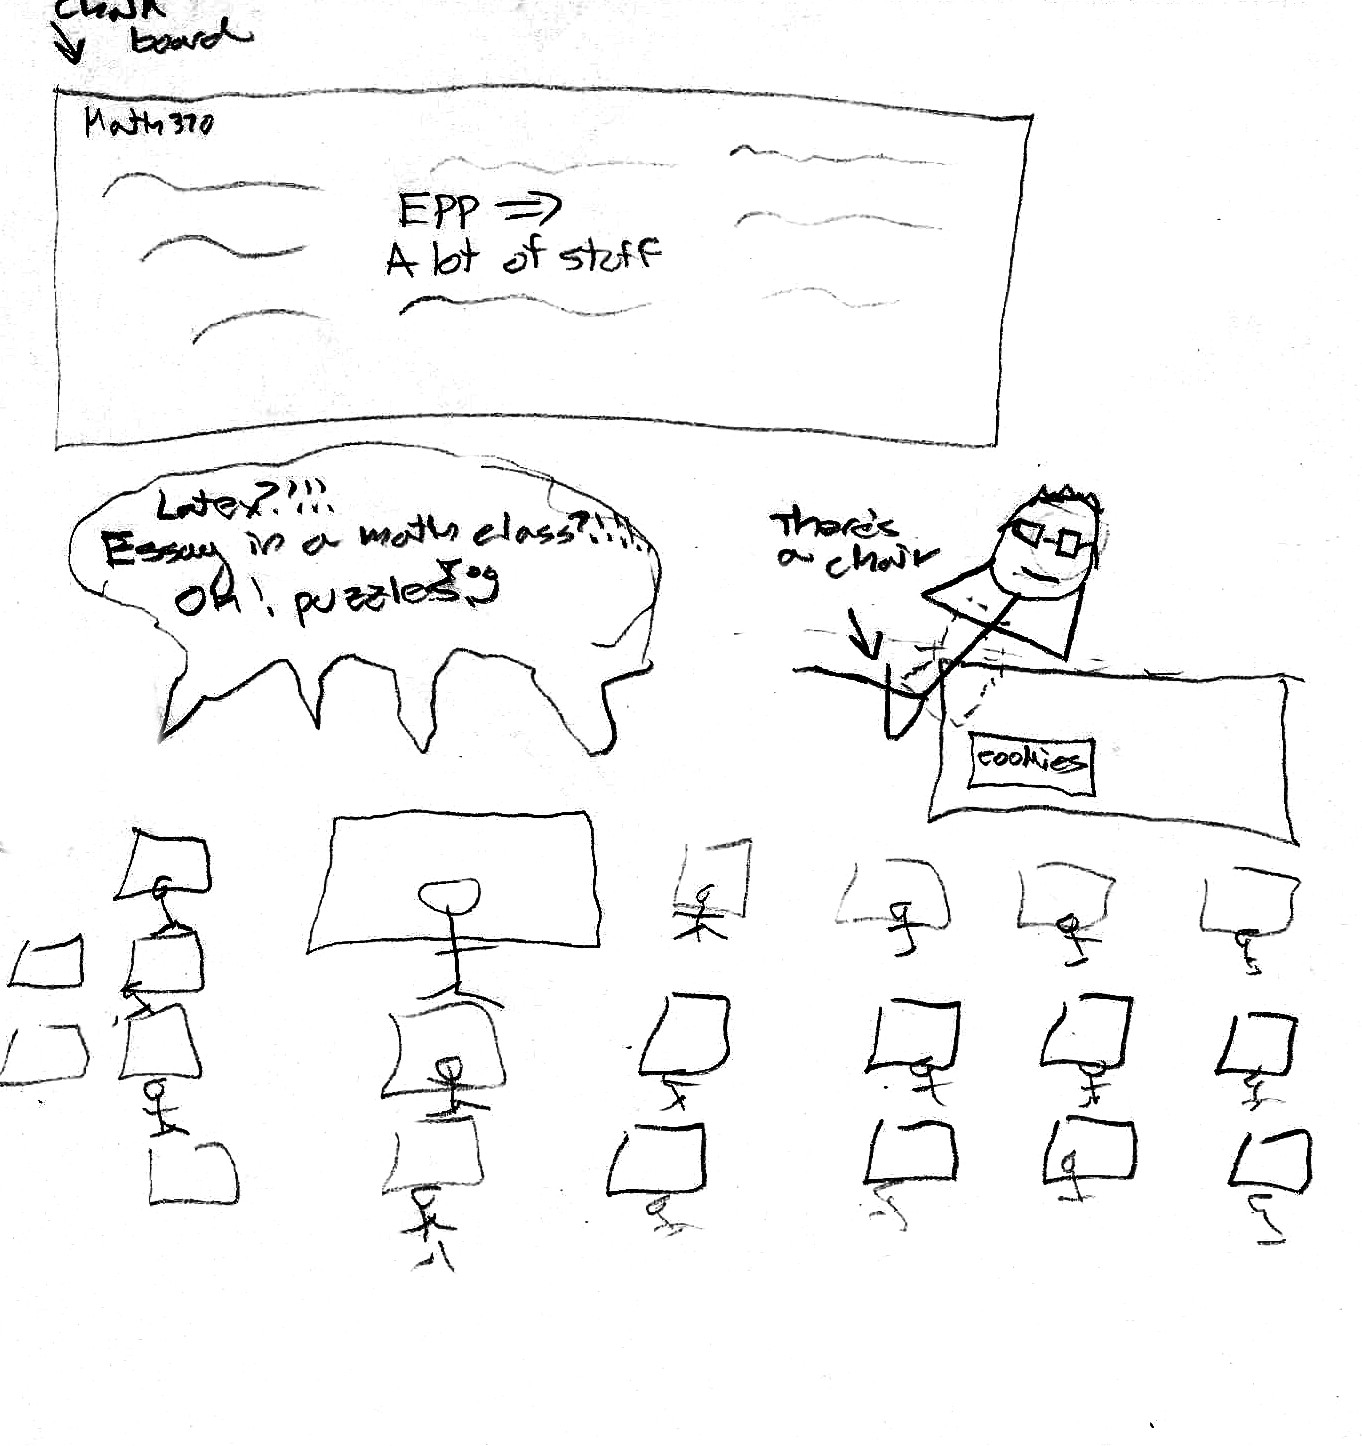 chalk
board
Math 370
EPP ⇒
A lot of stuff
Latex?!!!
Essay in a math class?!!!!
Oh! puzzles
There's
a chair
cookies